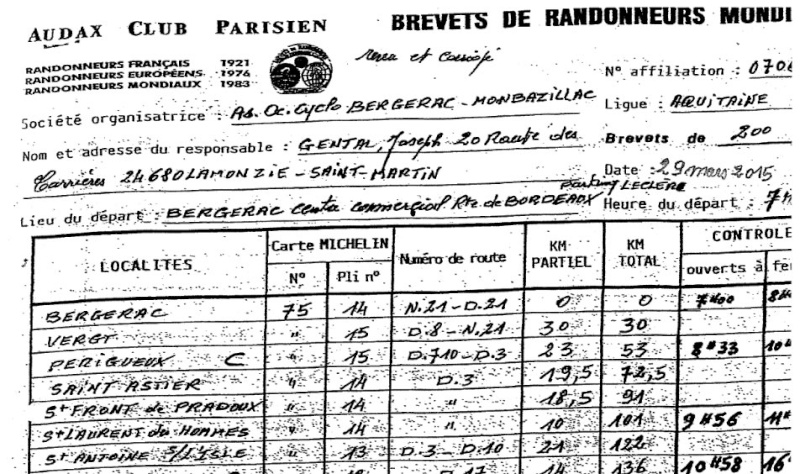 AUDAX CLUB PARISIEN
BREVETS DE RANDONNEURS MONDI
RANDONNEURS FRANÇAIS 1921
RANDONNEURS EUROPÉENS 1976
RANDONNEURS MONDIAUX 1983
revu et corrigé
N° affiliation : 0706
Société organisatrice : As. Oc. Cyclo BERGERAC - MONBAZILLAC
Ligue : AQUITAINE
Nom et adresse du responsable : GENTAL, Joseph 20 Route des
Brevets de 200
Carrières 24680 LAMONZIE - SAINT-MARTIN
Date : 29 mars 2015
Parking LECLERC
Lieu du départ : BERGERAC Centre commercial Rte de BORDEAUX
Heure du départ : 7H
LOCALITES Carte MICHELIN Numéro de route KM PARTIEL KM TOTAL CONTROLE
N° Pli n° ouverts à fe
BERGERAC 75 14 N.21 - D.21 0 0 7H00 8H
VERGT " 15 D.8 - N.21 30 30
PERIGUEUX C " 15 D.710 - D.3 23 53 8H33 10H
SAINT ASTIER " 14 D.3 19,5 72,5
St FRONT de PRADOUX " 14 " 18,5 91
St LAURENT des HOMMES " 14 " 10 101 9H56 11H
St ANTOINE S/L'ISLE " 13 D.3 - D.10 21 122
D.17 14 136 10H58 16